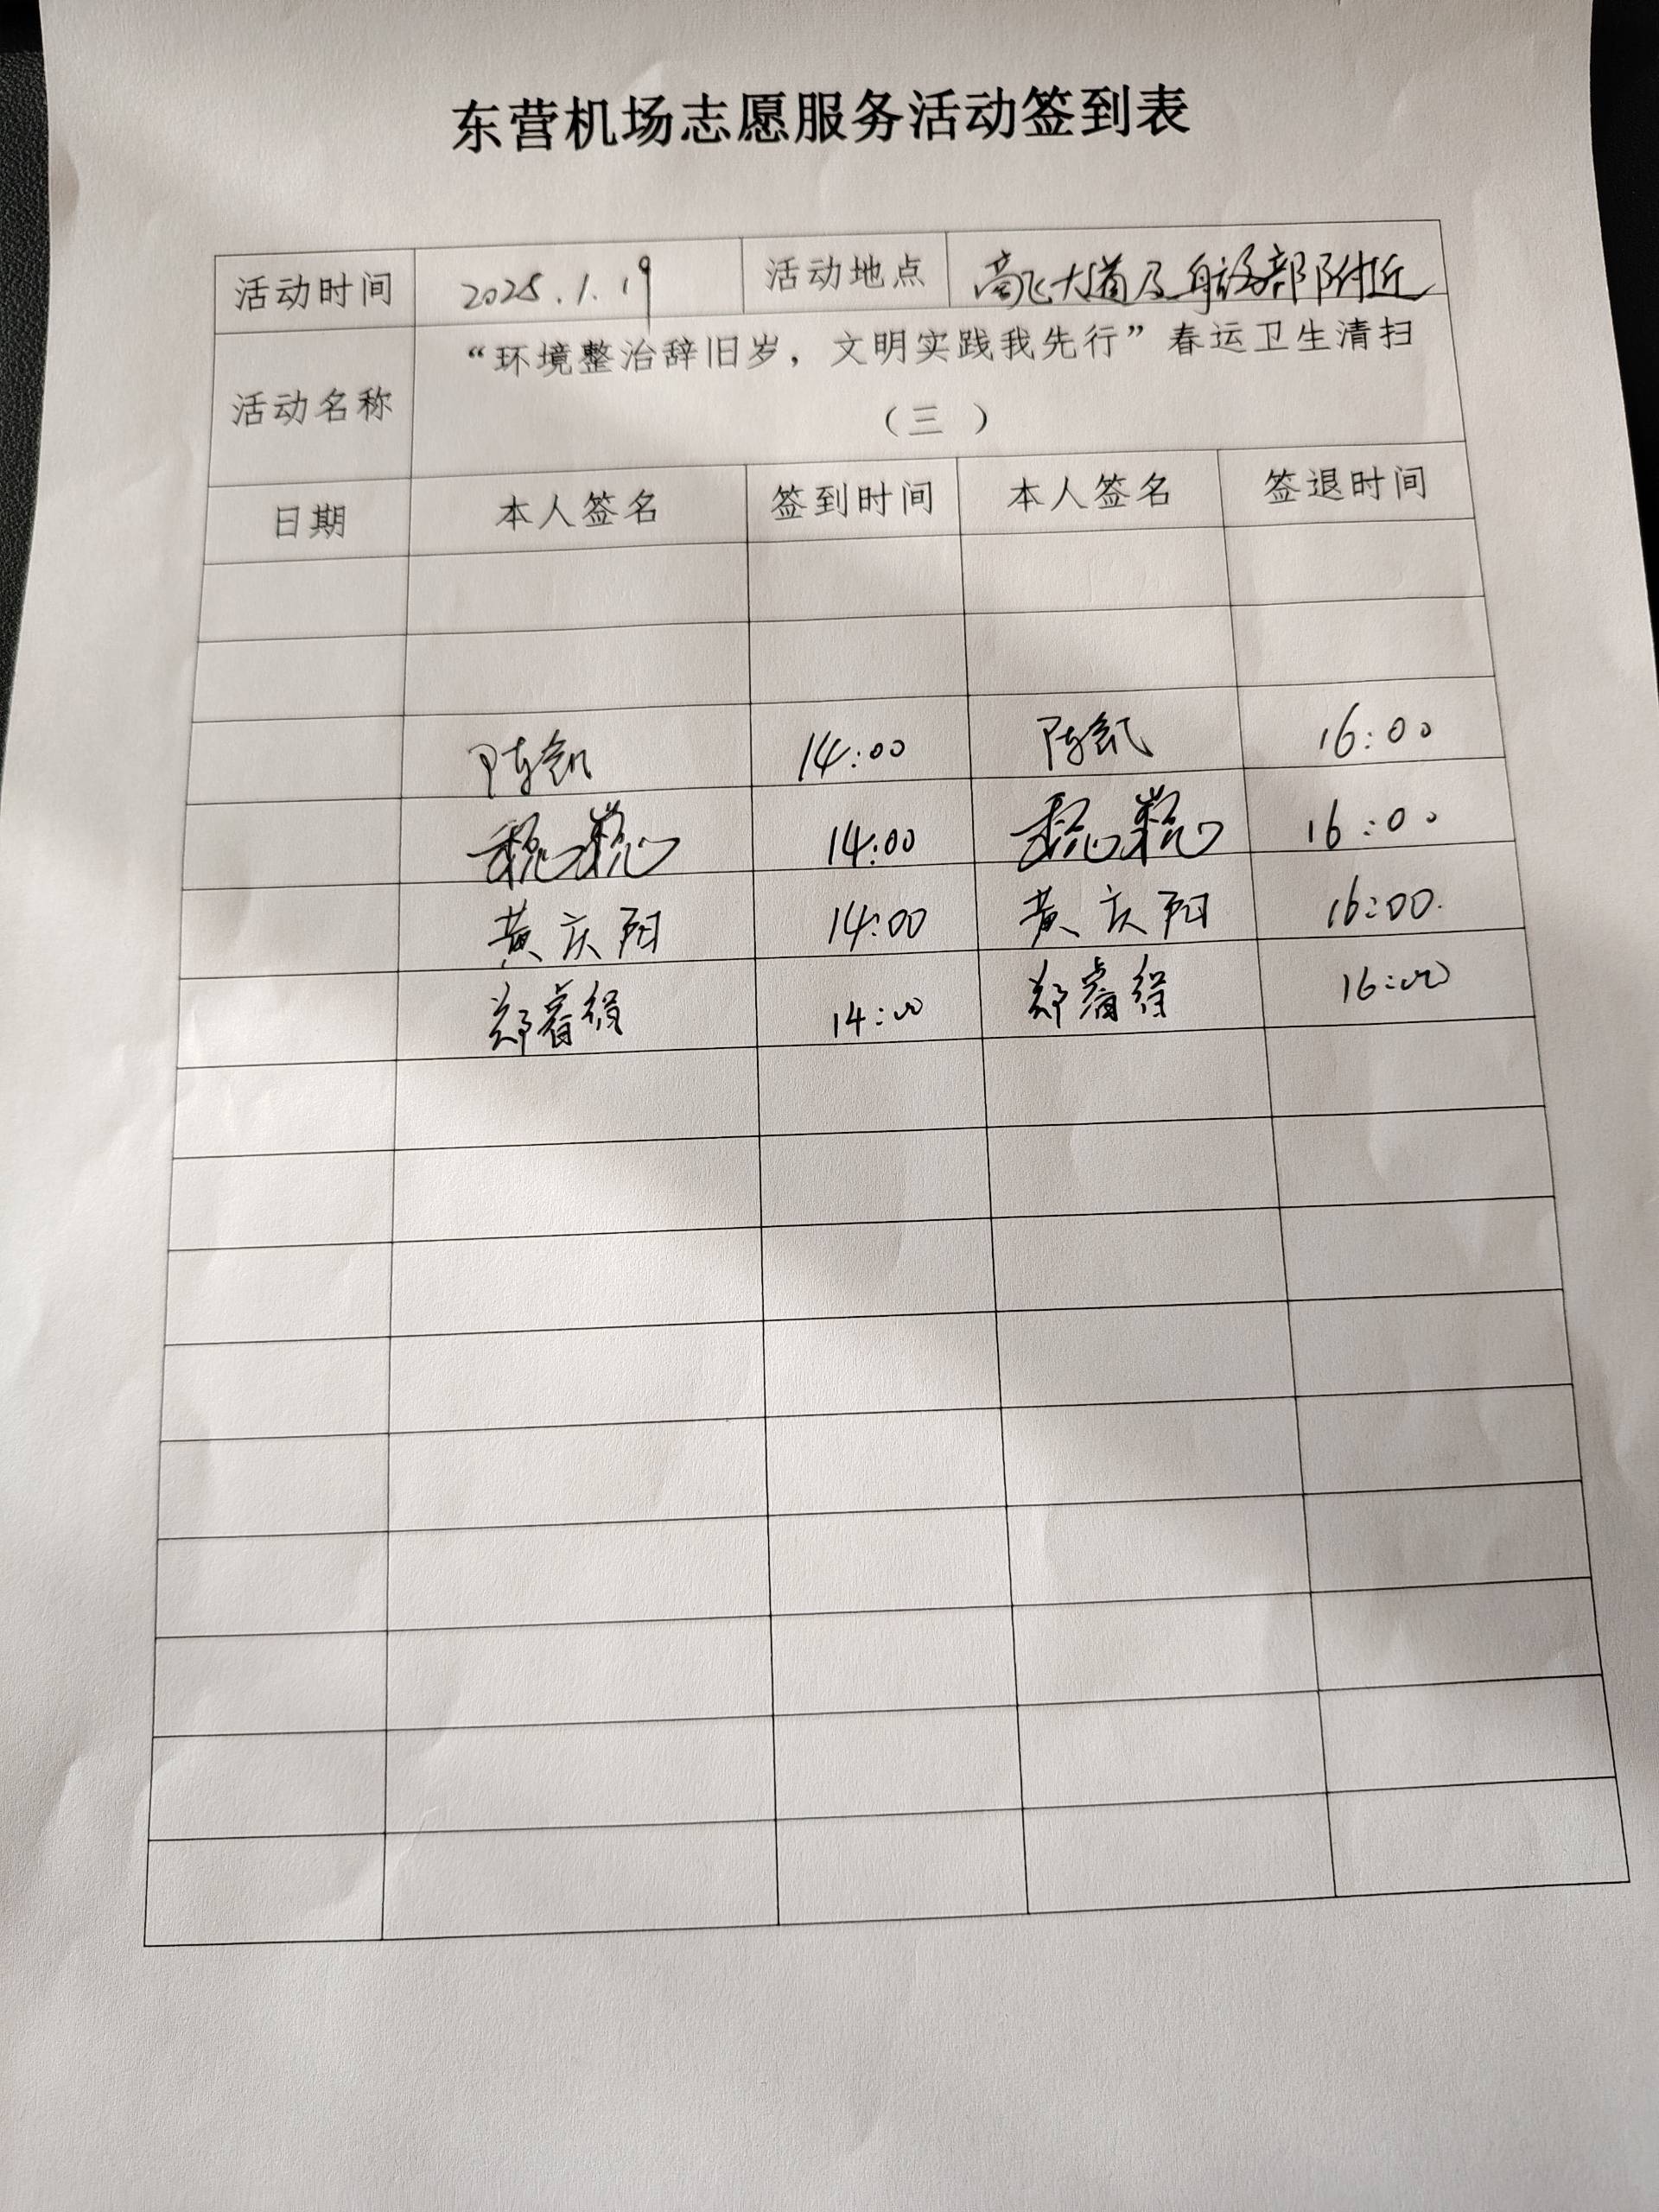 东营机场志愿服务活动签到表
活动时间 2025.1.19 活动地点 高飞大道及身设部附近
活动名称 “环境整治辞旧岁，文明实践我先行”春运卫生清扫
（三 ）
日期 本人签名 签到时间 本人签名 签退时间
陈凯 14:00 陈凯 16:00
14:00 16:00
黄庆阳 14:00 黄庆阳 16:00.
郑睿 14:00 郑睿 16:00